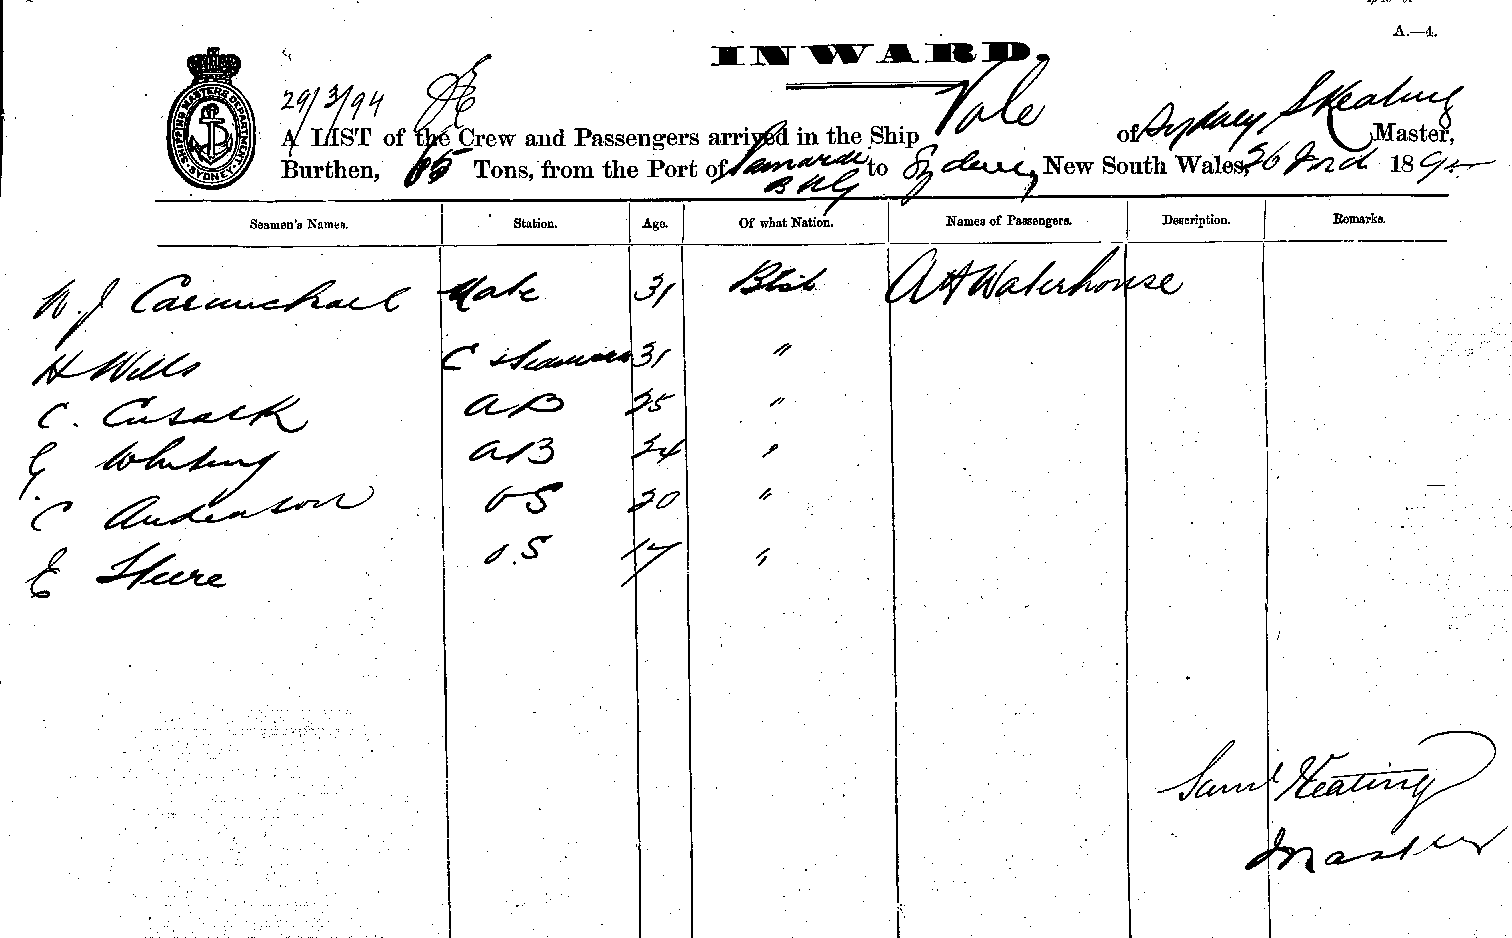 A.—4.
INWARD.
29/3/94
A LIST of the Crew and Passengers arrived in the Ship Vale of Sydney, S Keating Master,
Burthen, 65 Tons, from the Port of to Sydney New South Wales, 26 189
Seamen's Names. Station. Age. Of what Nation. Names of Passengers. Description. Remarks.
W. J Carmichael Mate 31 Btsh A H Waterhouse
H Wills C & Seaman 31 "
C. Cusack AB 25 "
G. Whiting AB 34 "
C Anderson OS 20 "
E O.S 17 "
Saml Keating
Master
SHIPPING MASTERS DEPARTMENT SYDNEY